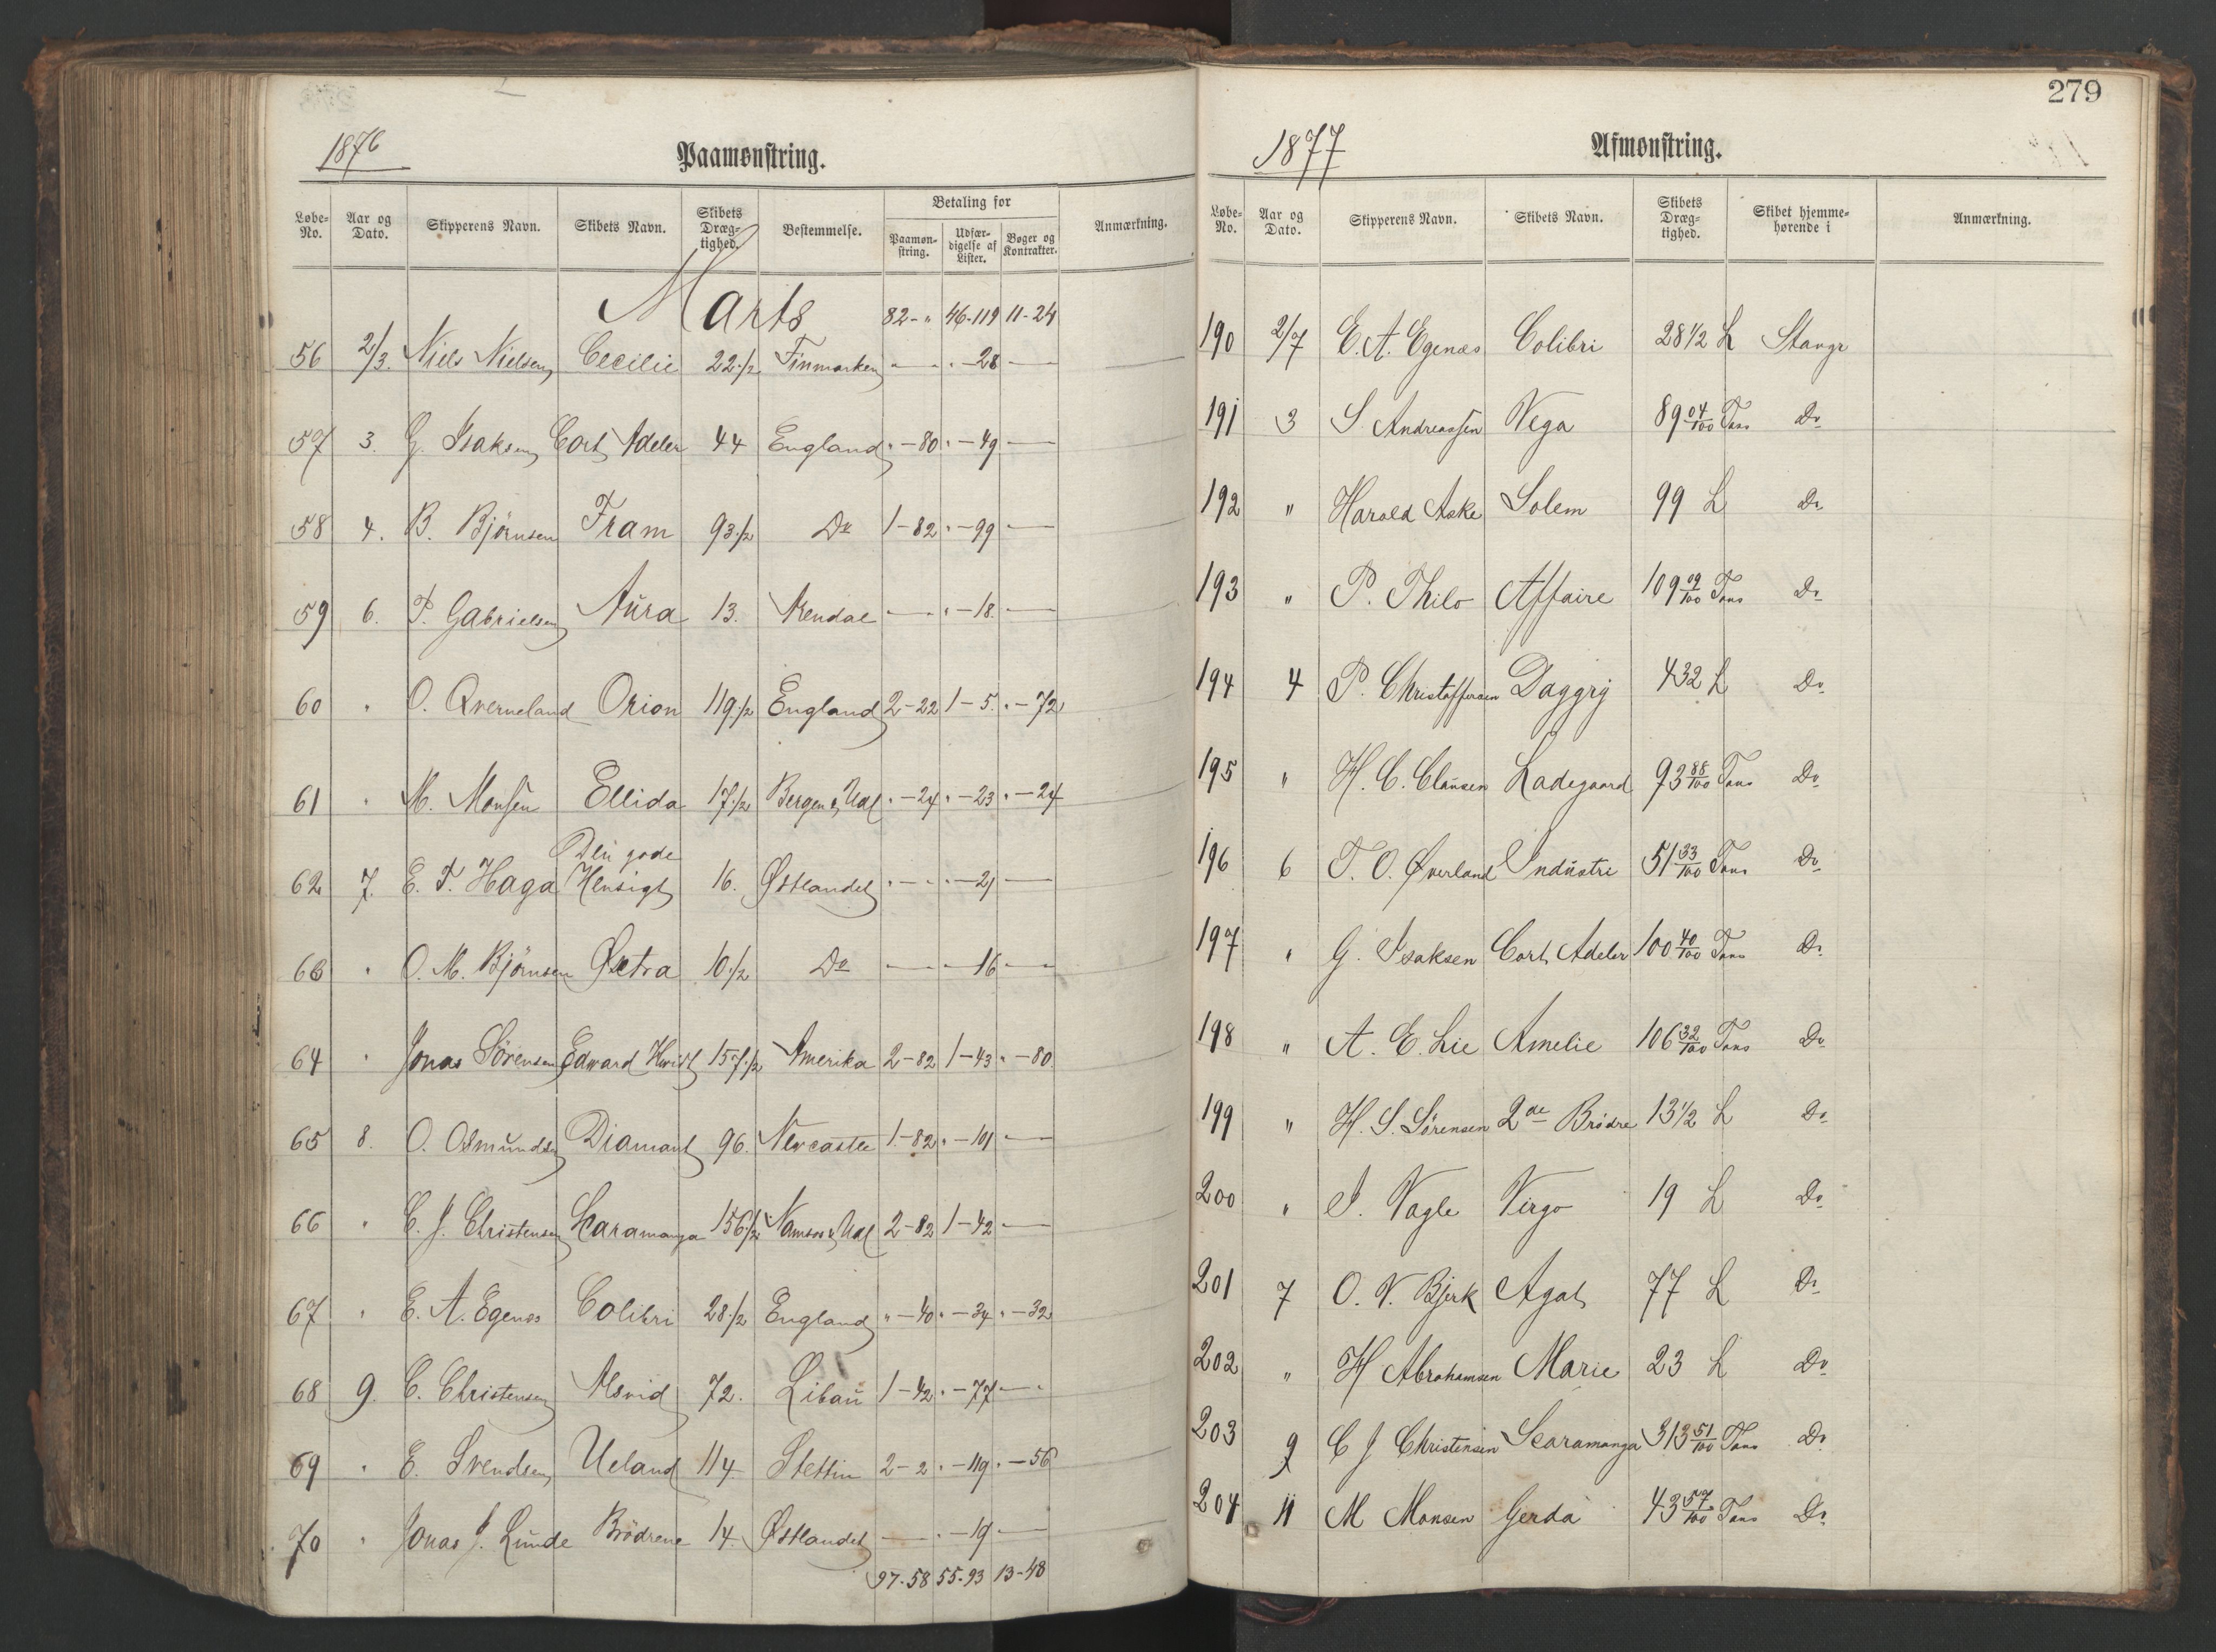 1876
Paamønstring.
Løbe-No. Aar og Dato. Skipperens Navn. Skibets Navn. Skibets Dræg-tighed. Bestemmelse. Betaling for Paamøn-string. Udfær-digelse af Lister. Bøger og Kontrakter. Anmærkning.
Marts 82-" 46-119 11-24
56 2/3. Niels Nielsen Cecilie 22 1/2 Finmarken - " - 28 -
57 3. G. Isaksen Cort Adeler 44 England " - 80 " - 49 -
58 4. B. Bjørnsen Fram 93 1/2 Do 1-82 " - 99 -
59 6. T. Gabrielsen Aura 13. Arendal - " - 18. -
60 " O. Qverneland Orion 119 1/2 England 2-22 1-5. " - 72
61 " M. Monsen Ellida 17 1/2 Bergen & Udl " - 24 " - 23 " - 24
62 7. E. T. Haga Den gode Hensigt 16. Østlandet " - " " - 21 -
63 " O. M. Bjørnsen Østra 10 1/2 Do - " - 16 -
64 " Jonas Sörensen Edward Hvidt 157 1/2 Amerika 2-82 1-43 " - 80.
65 8. O. Osmundsen Diamant 96. Newcastle 1-82 " - 101 -
66 " C. J. Christensen Scaramanga 156 1/2 Namsos & Udl 2-82 1-42 -
67 " E. A. Egenæs Colibri 28 1/2 England " - 40 " - 34 " - 32
68 9. C. Christensen Alsvid 72. Libau 1-42 " - 77 -
69 " E. Svendsen Ueland 114 Stettin 2-2 " - 119 " - 56
70 " Jonas J. Lunde Brödrene 14 Østlandet - " - 19 -
97-58 55-93 13-48
279
1877
Afmønstring.
Løbe-No. Aar og Dato. Skipperens Navn. Skibets Navn. Skibets Dræg-tighed. Skibet hjemme-hørende i Anmærkning.
190 2/7 E. A. Egenæs Colibri 28 1/2 L Stavgr
191 3 S Andreassen Vega 89 04/100 Tons Do
192 " Harald Aske Solem 99 L Do
193 " P. Thilo Affaire 109 09/100 Tons Do
194 4 P. Christoffersen Daggry 432 L Do
195 " H. C. Clausen Ladegaard 93 88/100 Tons Do
196 6 T. O. Øverland Industri 51 33/100 Tons Do
197 " G. Isaksen Cort Adeler 100 40/100 Tons Do
198 " A. E. Lie Amelie 106 32/100 Tons Do
199 " H. S. Sörensen 2de Brödre 13 1/2 L Do
200 " S. Vagle Virgo 19 L Do
201 7 O. V. Bjerk Agat 77 L Do
202 " H Abrahamsen Marie 23 L Do
203 9 C J Christensen Scaramanga 313 51/100 Tons Do
204 11 M Monsen Gerda 43 57/100 Tons Do